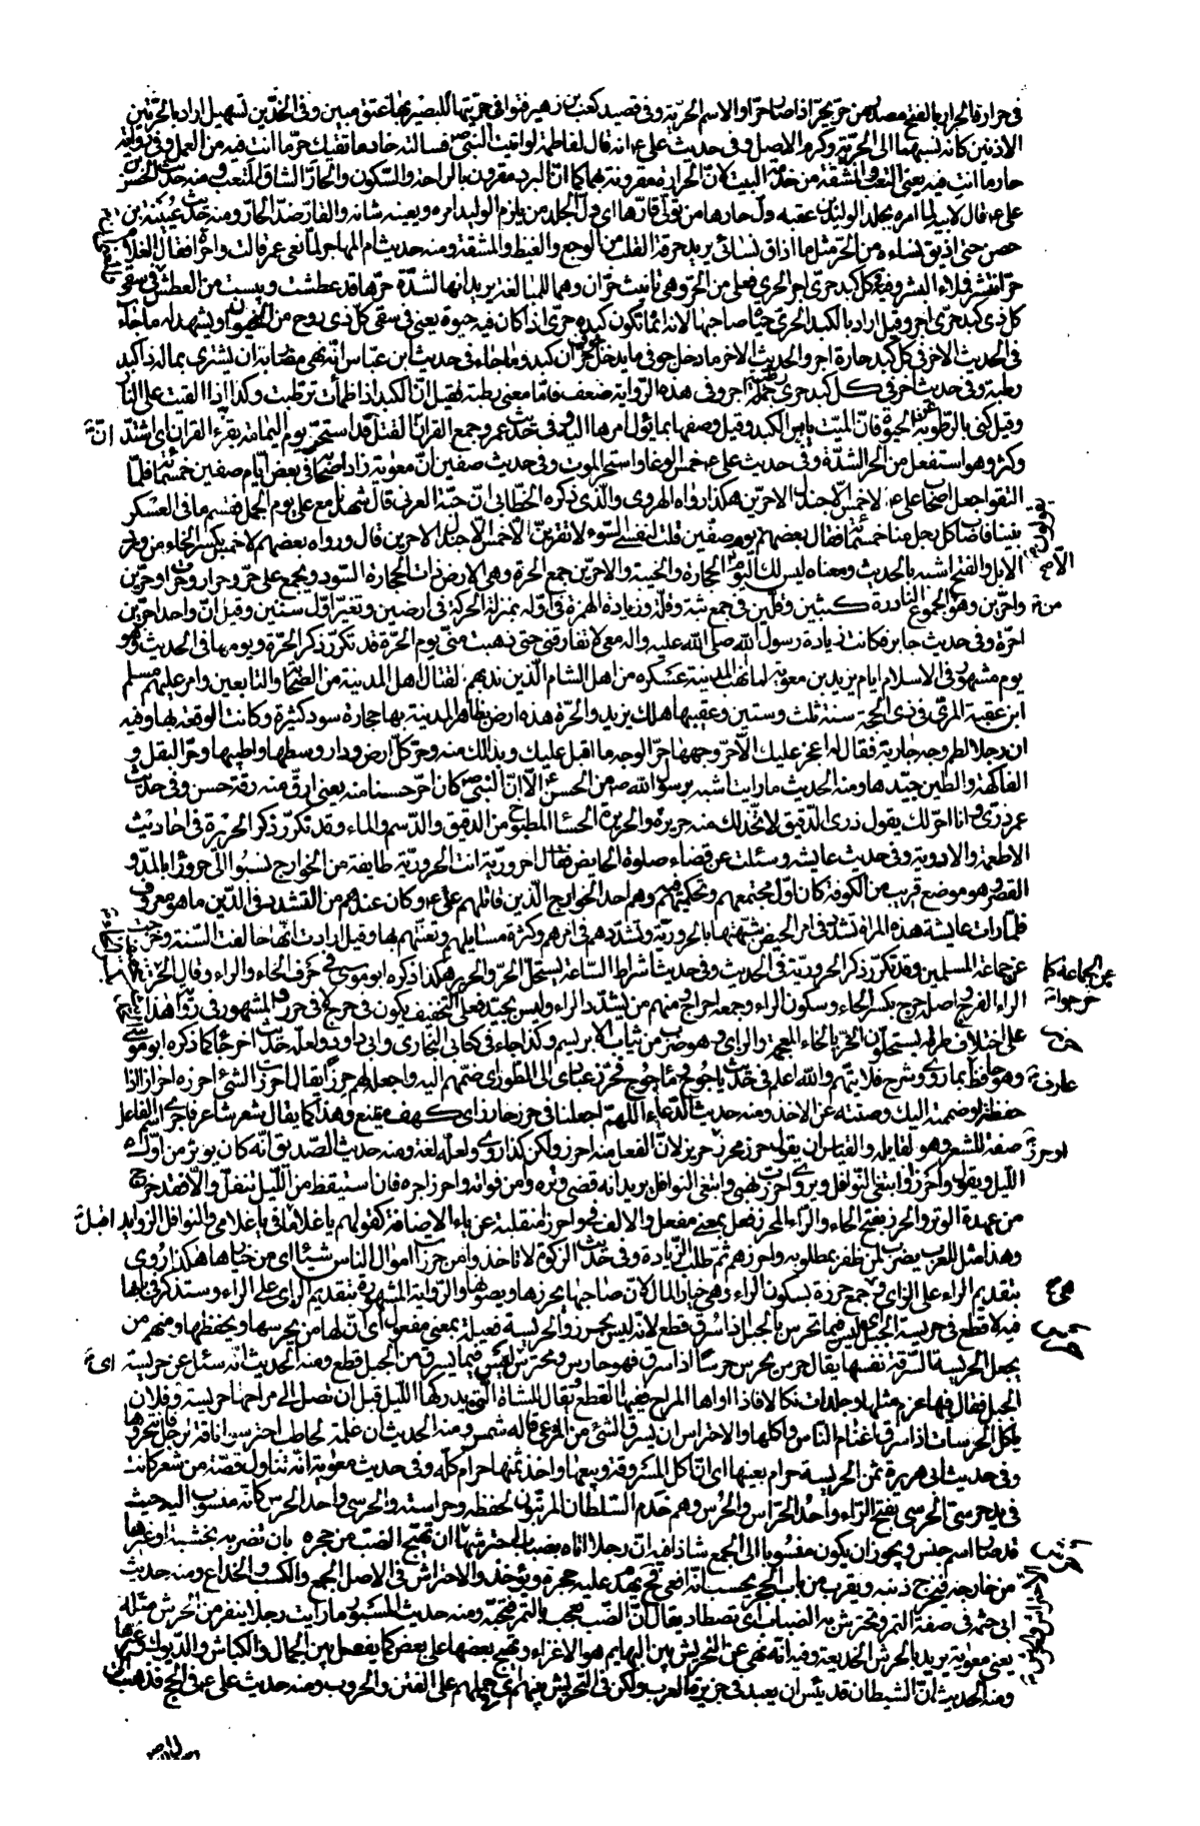 في حرار فالحرار بالفتح مصدر من حرّ يحرّ اذا صار حرّا والاسم الحريّة وفي قصيد كعب بن زهير قنواء في حرّيتها للبصير بها عتق مبين وفي الخدّين تسهيل اراد بالحرّتين
الاذنين كانه نسبهما الى الحريّة وكرم الاصل وفي حديث علي ع انه قال لفاطمة لو اتيت النبي ص فسالته خادما تقيك حرّ ما انت فيه من العمل وفي رواية
حار ما انت فيه يعني التعب والمشقة من خدمة البيت لانّ الحرارة مقرونة بهما كما انّ البرد مقرون بالراحة والسّكون والحارّ الشاق المتعب ومنه حديث الحسن
علي ع قال لابيه لما امره بجلد الوليد بن عقبه ولّ حارها من تولّى قارّها اي ولّ الجلد من يلزم الوليد امره ويعينه شانه والقارّ ضدّ الحارّ ومنه حديث عيينة بن
حصن حتى اذيق نساءه من الحرّ مثل ما اذاق نسائي يريد حرقة القلب من الوجع والغيظ والمشقة ومنه حديث ام المهاجر لما نعي عمر قالت واحرّاه فقال الغلام
حرّ انتشر فملاء البشر وفيه في كل كبد حرّى اجر الحرّى فعلى من الحرّ وهي تانيث حرّان وهما للمبالغة يريد انها لشدّة حرّها قد عطشت ويبست من العطش في سقي
كل ذي كبد حرّى اجر وقيل اراد بالكبد الحرّى حيوة صاحبها لانه انما تكون كبده حرّى اذا كان فيه حيوة يعني في سقي كلّ ذي روح من الحيوان ويشهد له ما جاء
في الحديث الاخر في كل كبد حارة اجر والحديث الاخر ما دخل جوفي ما يدخل جوف حرّان كبد وما جاء في حديث ابن عبّاس انّه نهى مضاربه ان يشتري بماله ذا كبد
رطبة وفي حديث اخر في كل كبد حرّى رطبة اجر وفي هذه الرّواية ضعف فامّا معنى رطبة فقيل انّ الكبد اذا ظمأت ترطّبت وكذا اذا القيت على النار
وقيل كنى بالرّطوبة عن الحيوة فانّ الميّت يابس الكبد وقيل وصفها بما يؤل امرها اليه وفي حديث عمر وجمع القران انّ القتل قد استحرّ يوم اليمامة بقرّاء القران اي اشتدّ
وكثر وهو استفعل من الحرّ الشدّة وفي حديث علي ع حمس الوغا واستحرّ الموت وفي حديث صفين انّ معوية زاد اصحابه في بعض ايّام صفين خمسمائة فلمّا
التقوا جعل اصحاب علي ع لا خمس الّا جندل الاحرّين هكذا رواه الهروي والّذي ذكره الخطّابي انّ حبّة العرني قال شهدنا مع علي يوم الجمل فقسم ما في العسكر
بيننا فاصاب كل رجل منا خمسمائة فقال بعضهم يوم صفّين قلت لنفسي السّوء لا تفرّينّ لا خمس الّا جندل الاحرّين قال ورواه بعضهم لا خمس بكسر الخاء من ورد
الابل والفتح اشبه بالحديث ومعناه ليس لك اليوم الّا الحجارة والخيبة والاحرّين جمع الحرّة وهي الارض ذات الحجارة السّود ويجمع على حرّ وحرار وحرّات وحرّين
واحرّين وهو من الجموع النادرة كثبين وقلّين في جمع ثبة وقلّة وزيادة الهمزة في اوّله بمنزلة الحركة في ارضين وتغيّر اوّل سنين وقيل انّ واحد احرّين
احرّة وفي حديث جابر فكانت زيادة رسول الله صلى الله عليه واله معي لا تفارقني حتى ذهبت منّي يوم الحرّة قد تكرّر ذكر الحرّة ويومها في الحديث وهو
يوم مشهور في الاسلام ايام يزيد بن معوية لما نهب المدينة عسكره من اهل الشام الّذين ندبهم لقتال اهل المدينة من الصّحابة والتابعين وامر عليهم مسلم
ابن عقبة المرّي في ذي الحجّة سنة ثلث وستين وعقيبها هلك يزيد والحرّة هذه ارض بظاهر المدينة بها حجارة سود كثيرة وكانت الوقعة بها وفيه
ان رجلا لطم وجه جارية فقال له اعجز عليك الّا حرّ وجهها حرّ الوجه ما اقبل عليك وبدا لك منه وحرّ كلّ ارض ودار وسطها واطيبها وحرّ البقل و
الفاكهة والطين جيّدها ومنه الحديث ما رايت اشبه برسول الله ص من الحسن الّا انّ النبي ص كان احرّ حسنا منه يعني ارقّ منه رقّة حسن وفي حديث
عمر ذرّي وانا احرّ لك يقول ذرّي الدّقيق لاتّخذ لك منه حريرة والحريرة الحسا المطبوخ من الدقيق والدّسم والماء وقد تكرّر ذكر الحريرة في احاديث
الاطعمة والادوية وفي حديث عايشة وسئلت عن قضاء صلوة الحايض فقالت احروريّة انت الحروريّة طايفة من الخوارج نسبوا الى حروراء بالمدّ و
القصر وهو موضع قريب من الكوفة كان اوّل مجتمعهم وتحكيمهم فيه وهم احد الخوارج الّذين قاتلهم علي ع وكان عندهم من التشدّد في الدّين ما هو معروف
فلمّا رات عايشة هذه المراة تشدّد في امر الحيض شبّهتها بالحروريّة وتشدّدهم في امرهم وكثرة مسايلهم وتعنّتهم بها وقيل ارادت انّها خالفت السّنة وخرجت
عن جماعة المسلمين وقد تكرّر ذكر الحروريّة في الحديث وفي حديث اشراط السّاعة يستحلّ الحرّ والحرير هكذا ذكره ابو موسى في حرف الحاء والراء وقال الحر بتخفيف
الراء الفرج واصله حرح بكسر الحاء وسكون الراء وجمعه احراح ومنهم من يشدّد الراء وليس بجيّد فعلى التخفيف يكون في حرح لا في حرر والمشهور في رواية هذا
على اختلاف طرقه يستحلّون الخزّ بالخاء المعجمة والزاي وهو ضرب من ثياب الابريسم وكذا جاء في كتابي البخاري وابي داود ولعلّه حديث اخر جاء كما ذكره ابو موسى
وهو حافظ بما روى وشرح فلا يتّهم والله اعلم في حديث ياجوج وماجوج فحرّز عبادي الى الطور اي ضمّهم اليه واجعله لهم حرزا يقال احرزت الشئ احرزه احرازا اذا
حفظته وضممته اليك وصنته عن الاخذ ومنه حديث الدّعاء اللّهمّ اجعلنا في حرز حارز اي كهف منيع وهذا كما يقال شعر شاعر فاجرى اسم الفاعل
صفة للشعر وهو لقايله والقياس ان يقول حرز محرز او حرز حريز لانّ الفعل منه احرز ولكن كذا روي ولعلّه لغة ومنه حديث الصّديق انّه كان يوتر من اوّل
اللّيل ويقول واحرزا وابتغي النّوافل ويروى احرزت نهبي وابتغي النوافل يريد انه قضى وتره وامن فواته واحرز اجره فان استيقظ من اللّيل تنفّل والّا فقد خرج
من عهدة الوتر والحرز بفتح الحاء والرّاء المحرز فعل بمعنى مفعل والالف في واحرزا منقلبة عن ياء الاضافة كقولهم يا غلاما في يا غلامي والنوافل الزوايد
وهذا مثل للعرب يضرب لمن ظفر بمطلوبه واحرزه ثمّ طلب الزّيادة وفي حديث الزكوة لا تاخذوا من حرزات اموال الناس شيئا اي من خيارها هكذا روي
بتقديم الراء على الزاي وهي جمع حرزة بسكون الراء وهي خيار المال لانّ صاحبها يحرزها ويصونها والرّواية المشهورة بتقديم الزاي على الراء وستذكر في بابها
فيه لا قطع في حريسة الجبل اي ليس فيما يحرس بالجبل اذا سرق قطع لانه ليس بحرز والحريسة فعيلة بمعنى مفعولة اي انّ لها من يحرسها ويحفظها ومنهم من
يجعل الحريسة السّرقة نفسها يقال حرس يحرس حرسا اذا سرق فهو حارس ومحترس اي ليس فيما يسرق من الجبل قطع ومنه الحديث انّه سئل عن حريسة
الجبل فقال فيها غرم مثلها وجلدات نكالا فاذا اواها المراح ففيها القطع ويقال للشاة الّتي يدركها اللّيل قبل ان تصل الى مراحها حريسة وفلان
ياكل الحرسات اذا سرق اغنام النّاس واكلها والاحتراس ان يسرق الشئ من المرعى قاله شمر ومنه الحديث ان غلمة لحاطب احترسوا ناقة لرجل فانتحروها
وفي حديث ابي هريرة ثمن الحريسة حرام بعينها اي انّ اكل المسروقة وبيعها واخذ ثمنها حرام كلّه وفي حديث معوية انّه تناول قصّة من شعر كانت
في يد حرسيّ الحرسي بفتح الرّاء واحد الحرّاس والحرس وهم خدم السّلطان المرتّبون لحفظه وحراسته والحرسي واحد الحرس كانّه منسوب اليه حيث
قد صار اسم جنس ويجوز ان يكون منسوبا الى الجمع شاذّا فيه انّ رجلا اتاه بضباب احترشها الاحتراش ان تهيّج الضبّ من جحره بان تضربه بخشبة او غيرها
من خارجه فيخرج ذنبه ويقرب من باب الجحر يحسب انّه افعى فحينئذ يهدم عليه جحره ويؤخذ والاحتراش في الاصل الجمع والكسب والخداع ومنه حديث
ابي حثمة في صفة التمر وتحترش به الضباب اي تصطاد يقال انّ الضّبّ يعجب بالتمر فيحبّه ومنه حديث المسور ما رايت رجلا ينفر من الحرش مثله
يعني معوية يريد بالحرش الخديعة وفيه انه نهى عن التحريش بين البهايم هو الاغراء وتهييج بعضها على بعض كما يفعل بين الجمال والكباش والديوك وغيرها
ومنه الحديث انّ الشيطان قد يئس ان يعبد في جزيرة العرب ولكن في التّحريش بينهم اي حملهم على الفتن والحروب ومنه حديث علي ع في الحج فذهبت